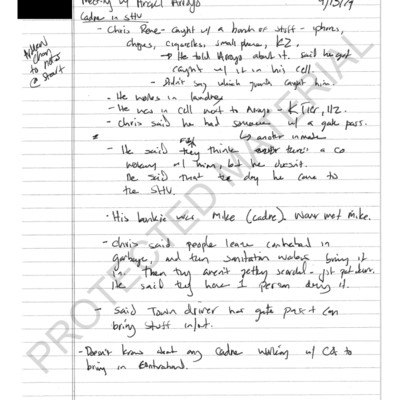 Meeting w/ Angel Arroyo 9/13/19
Cadre in SHU
- Chris Rene - caught w/ a bunch of stuff - iphones,
drugs, cigarettes, small phone, K2.
↳ He told Arroyo about it. said he got
caught w/ it in his cell.
- Didn't say which guards caught him.
- He works in laundry
- He was in cell next to Arroyo - K Tier, 112.
- Chris said he had someone w/ a gate pass.
↳ another inmate
- He said they think there's a CO
working w/ him, but he doesn't.
He said that the day he came to
the SHU.
- His bunkie was Mike (cadre). Never met Mike.
- Chris said people leave contraband in
garbage, and then sanitation workers bring it
in. Then they aren't getting searched - just pat down.
He said they have 1 person doing it.
- Said Town driver has gate pass + can
bring stuff in/out.
- Doesn't know about any cadre working w/ CO to
bring in contraband.
to notes
@ start
PROTECTED MATERIAL